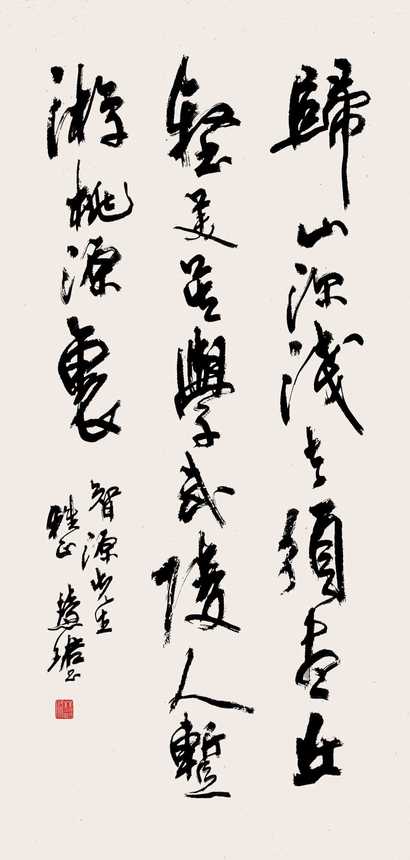 歸山深淺去須盡丘
壑美莫學武陵人暫
游桃源裏
智源先生
雅正 慧珺书